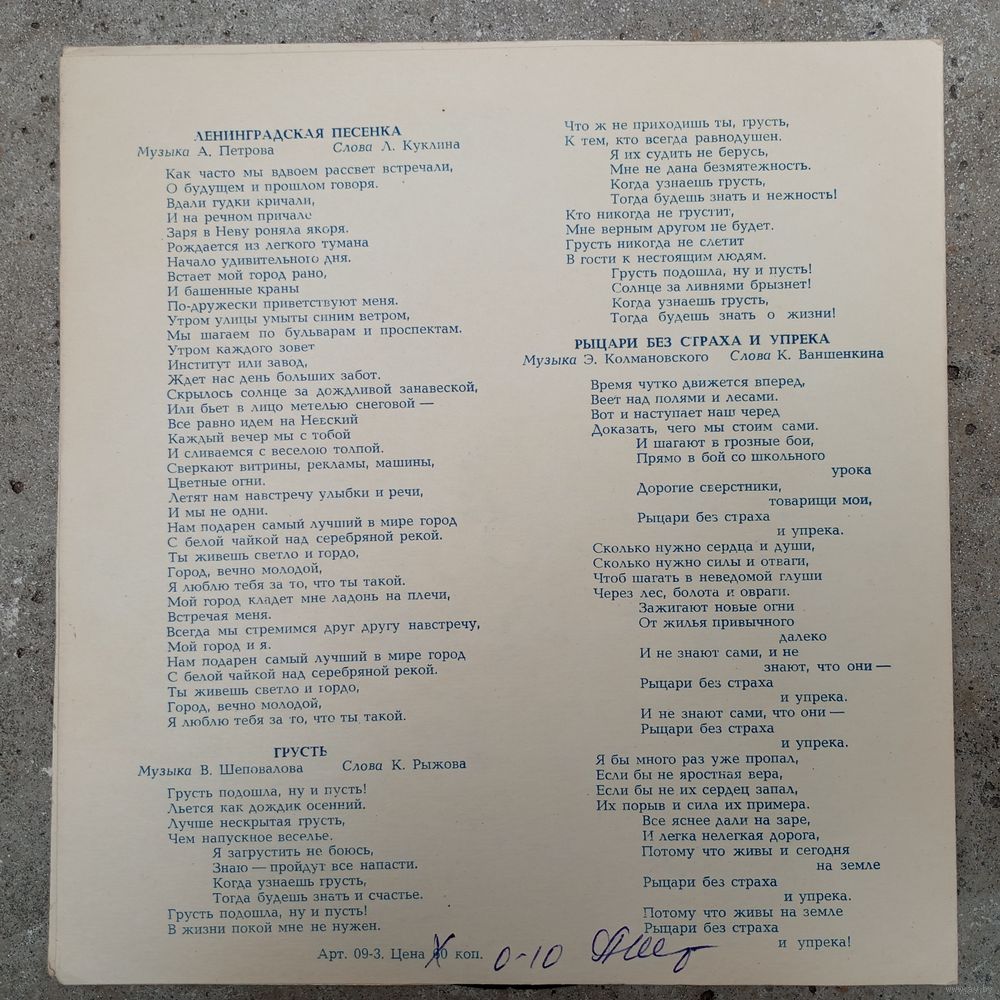 ЛЕНИНГРАДСКАЯ ПЕСЕНКА
Музыка А. Петрова Слова Л. Куклина
Как часто мы вдвоем рассвет встречали,
О будущем и прошлом говоря.
Вдали гудки кричали,
И на речном причале
Заря в Неву роняла якоря.
Рождается из легкого тумана
Начало удивительного дня.
Встает мой город рано,
И башенные краны
По-дружески приветствуют меня.
Утром улицы умыты синим ветром,
Мы шагаем по бульварам и проспектам.
Утром каждого зовет
Институт или завод,
Ждет нас день больших забот.
Скрылось солнце за дождливой занавеской,
Или бьет в лицо метелью снеговой —
Все равно идем на Невский
Каждый вечер мы с тобой
И сливаемся с веселою толпой.
Сверкают витрины, рекламы, машины,
Цветные огни.
Летят нам навстречу улыбки и речи,
И мы не одни.
Нам подарен самый лучший в мире город
С белой чайкой над серебряной рекой.
Ты живешь светло и гордо,
Город, вечно молодой,
Я люблю тебя за то, что ты такой.
Мой город кладет мне ладонь на плечи,
Встречая меня.
Всегда мы стремимся друг другу навстречу,
Мой город и я.
Нам подарен самый лучший в мире город
С белой чайкой над серебряной рекой.
Ты живешь светло и гордо,
Город, вечно молодой,
Я люблю тебя за то, что ты такой.
ГРУСТЬ
Музыка В. Шеповалова Слова К. Рыжова
Грусть подошла, ну и пусть!
Льется как дождик осенний.
Лучше нескрытая грусть,
Чем напускное веселье.
Я загрустить не боюсь,
Знаю — пройдут все напасти.
Когда узнаешь грусть,
Тогда будешь знать и счастье.
Грусть подошла, ну и пусть!
В жизни покой мне не нужен.
Что ж не приходишь ты, грусть,
К тем, кто всегда равнодушен.
Я их судить не берусь,
Мне не дана безмятежность.
Когда узнаешь грусть,
Тогда будешь знать и нежность!
Кто никогда не грустит,
Мне верным другом не будет.
Грусть никогда не слетит
В гости к нестоящим людям.
Грусть подошла, ну и пусть!
Солнце за ливнями брызнет!
Когда узнаешь грусть,
Тогда будешь знать о жизни!
РЫЦАРИ БЕЗ СТРАХА И УПРЕКА
Музыка Э. Колмановского Слова К. Ваншенкина
Время чутко движется вперед,
Веет над полями и лесами.
Вот и наступает наш черед
Доказать, чего мы стоим сами.
И шагают в грозные бои,
Прямо в бой со школьного
урока
Дорогие сверстники,
товарищи мои,
Рыцари без страха
и упрека.
Сколько нужно сердца и души,
Сколько нужно силы и отваги,
Чтоб шагать в неведомой глуши
Через лес, болота и овраги.
Зажигают новые огни
От жилья привычного
далеко
И не знают сами, и не
знают, что они —
Рыцари без страха
и упрека.
И не знают сами, что они —
Рыцари без страха
и упрека.
Я бы много раз уже пропал,
Если бы не яростная вера,
Если бы не их сердец запал,
Их порыв и сила их примера.
Все яснее дали на заре,
И легка нелегкая дорога,
Потому что живы и сегодня
на земле
Рыцари без страха
и упрека.
Потому что живы на земле
Рыцари без страха
и упрека!
Арт. 09-3. Цена 60 коп. 0-10